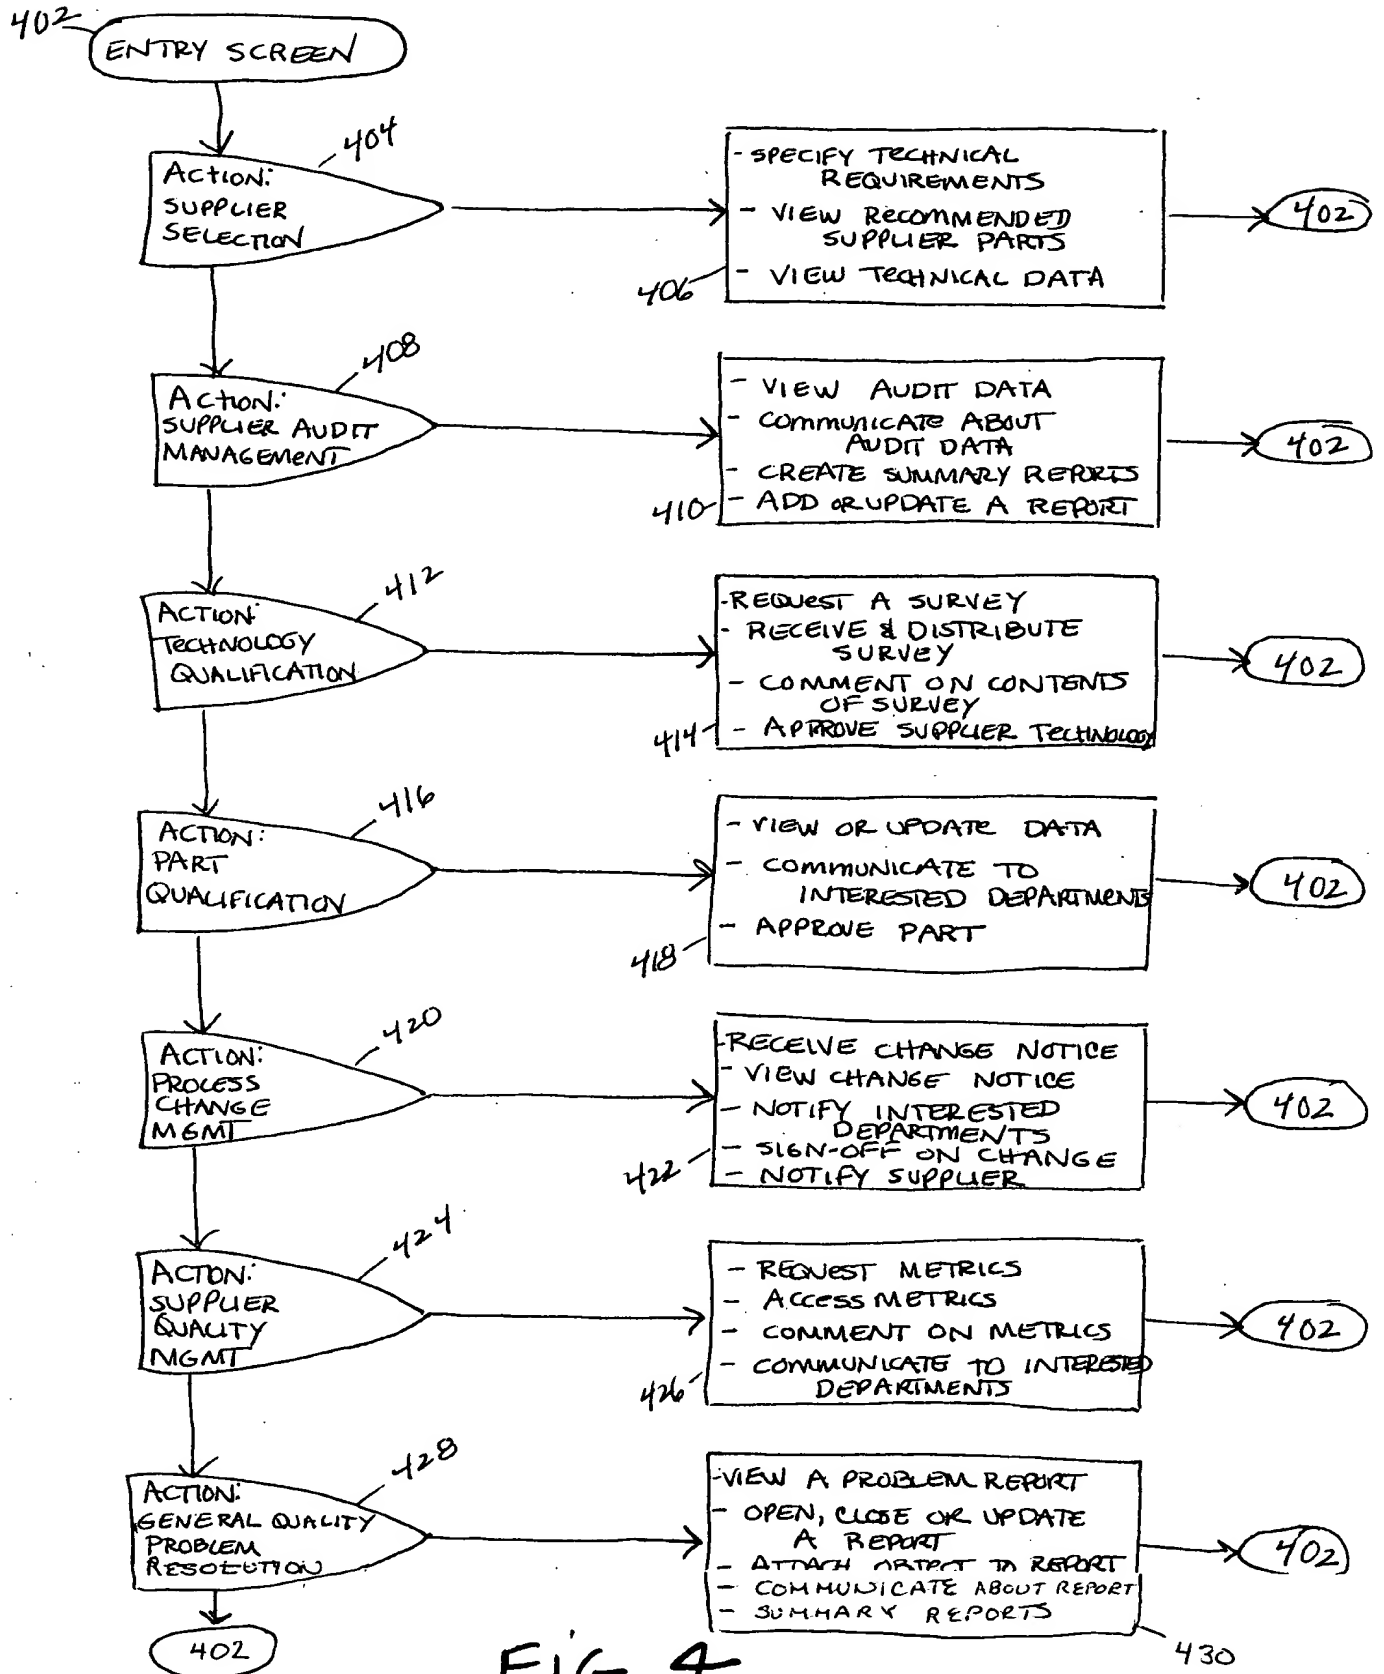 402
ENTRY SCREEN
404
ACTION:
SUPPLIER
SELECTION
- SPECIFY TECHNICAL
REQUIREMENTS
- VIEW RECOMMENDED
SUPPLIER PARTS
406
- VIEW TECHNICAL DATA
402
408
ACTION:
SUPPLIER AUDIT
MANAGEMENT
- VIEW AUDIT DATA
- COMMUNICATE ABOUT
AUDIT DATA
- CREATE SUMMARY REPORTS
410
- ADD OR UPDATE A REPORT
402
412
ACTION:
TECHNOLOGY
QUALIFICATION
- REQUEST A SURVEY
- RECEIVE & DISTRIBUTE
SURVEY
- COMMENT ON CONTENTS
OF SURVEY
414
- APPROVE SUPPLIER TECHNOLOGY
402
416
ACTION:
PART
QUALIFICATION
- VIEW OR UPDATE DATA
- COMMUNICATE TO
INTERESTED DEPARTMENTS
- APPROVE PART
418
402
420
ACTION:
PROCESS
CHANGE
MGMT
- RECEIVE CHANGE NOTICE
- VIEW CHANGE NOTICE
- NOTIFY INTERESTED
DEPARTMENTS
- SIGN-OFF ON CHANGE
422
- NOTIFY SUPPLIER
402
424
ACTION:
SUPPLIER
QUALITY
MGMT
- REQUEST METRICS
- ACCESS METRICS
- COMMENT ON METRICS
- COMMUNICATE TO INTERESTED
DEPARTMENTS
426
402
428
ACTION:
GENERAL QUALITY
PROBLEM
RESOLUTION
- VIEW A PROBLEM REPORT
- OPEN, CLOSE OR UPDATE
A REPORT
- ATTACH OBJECT TO REPORT
- COMMUNICATE ABOUT REPORT
- SUMMARY REPORTS
402
430
402
FIG 4